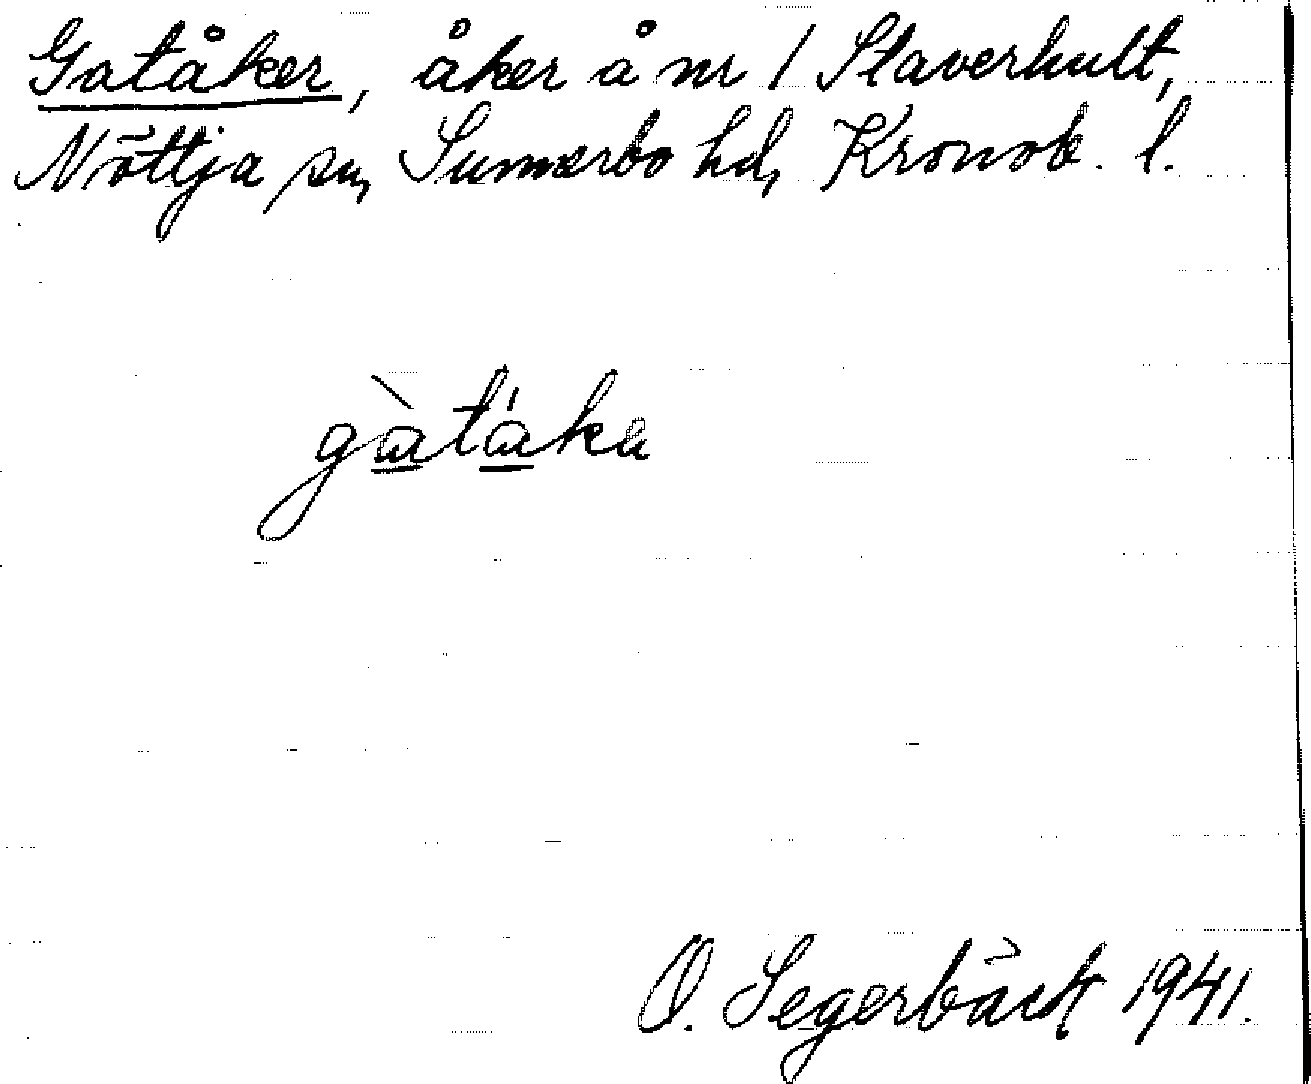 Gatåker, åker å nr 1 Slaverhult,
Nöttja sn, Sunnerbo hd, Kronob. l.
gàtáka
O. Segerbäck 1941.